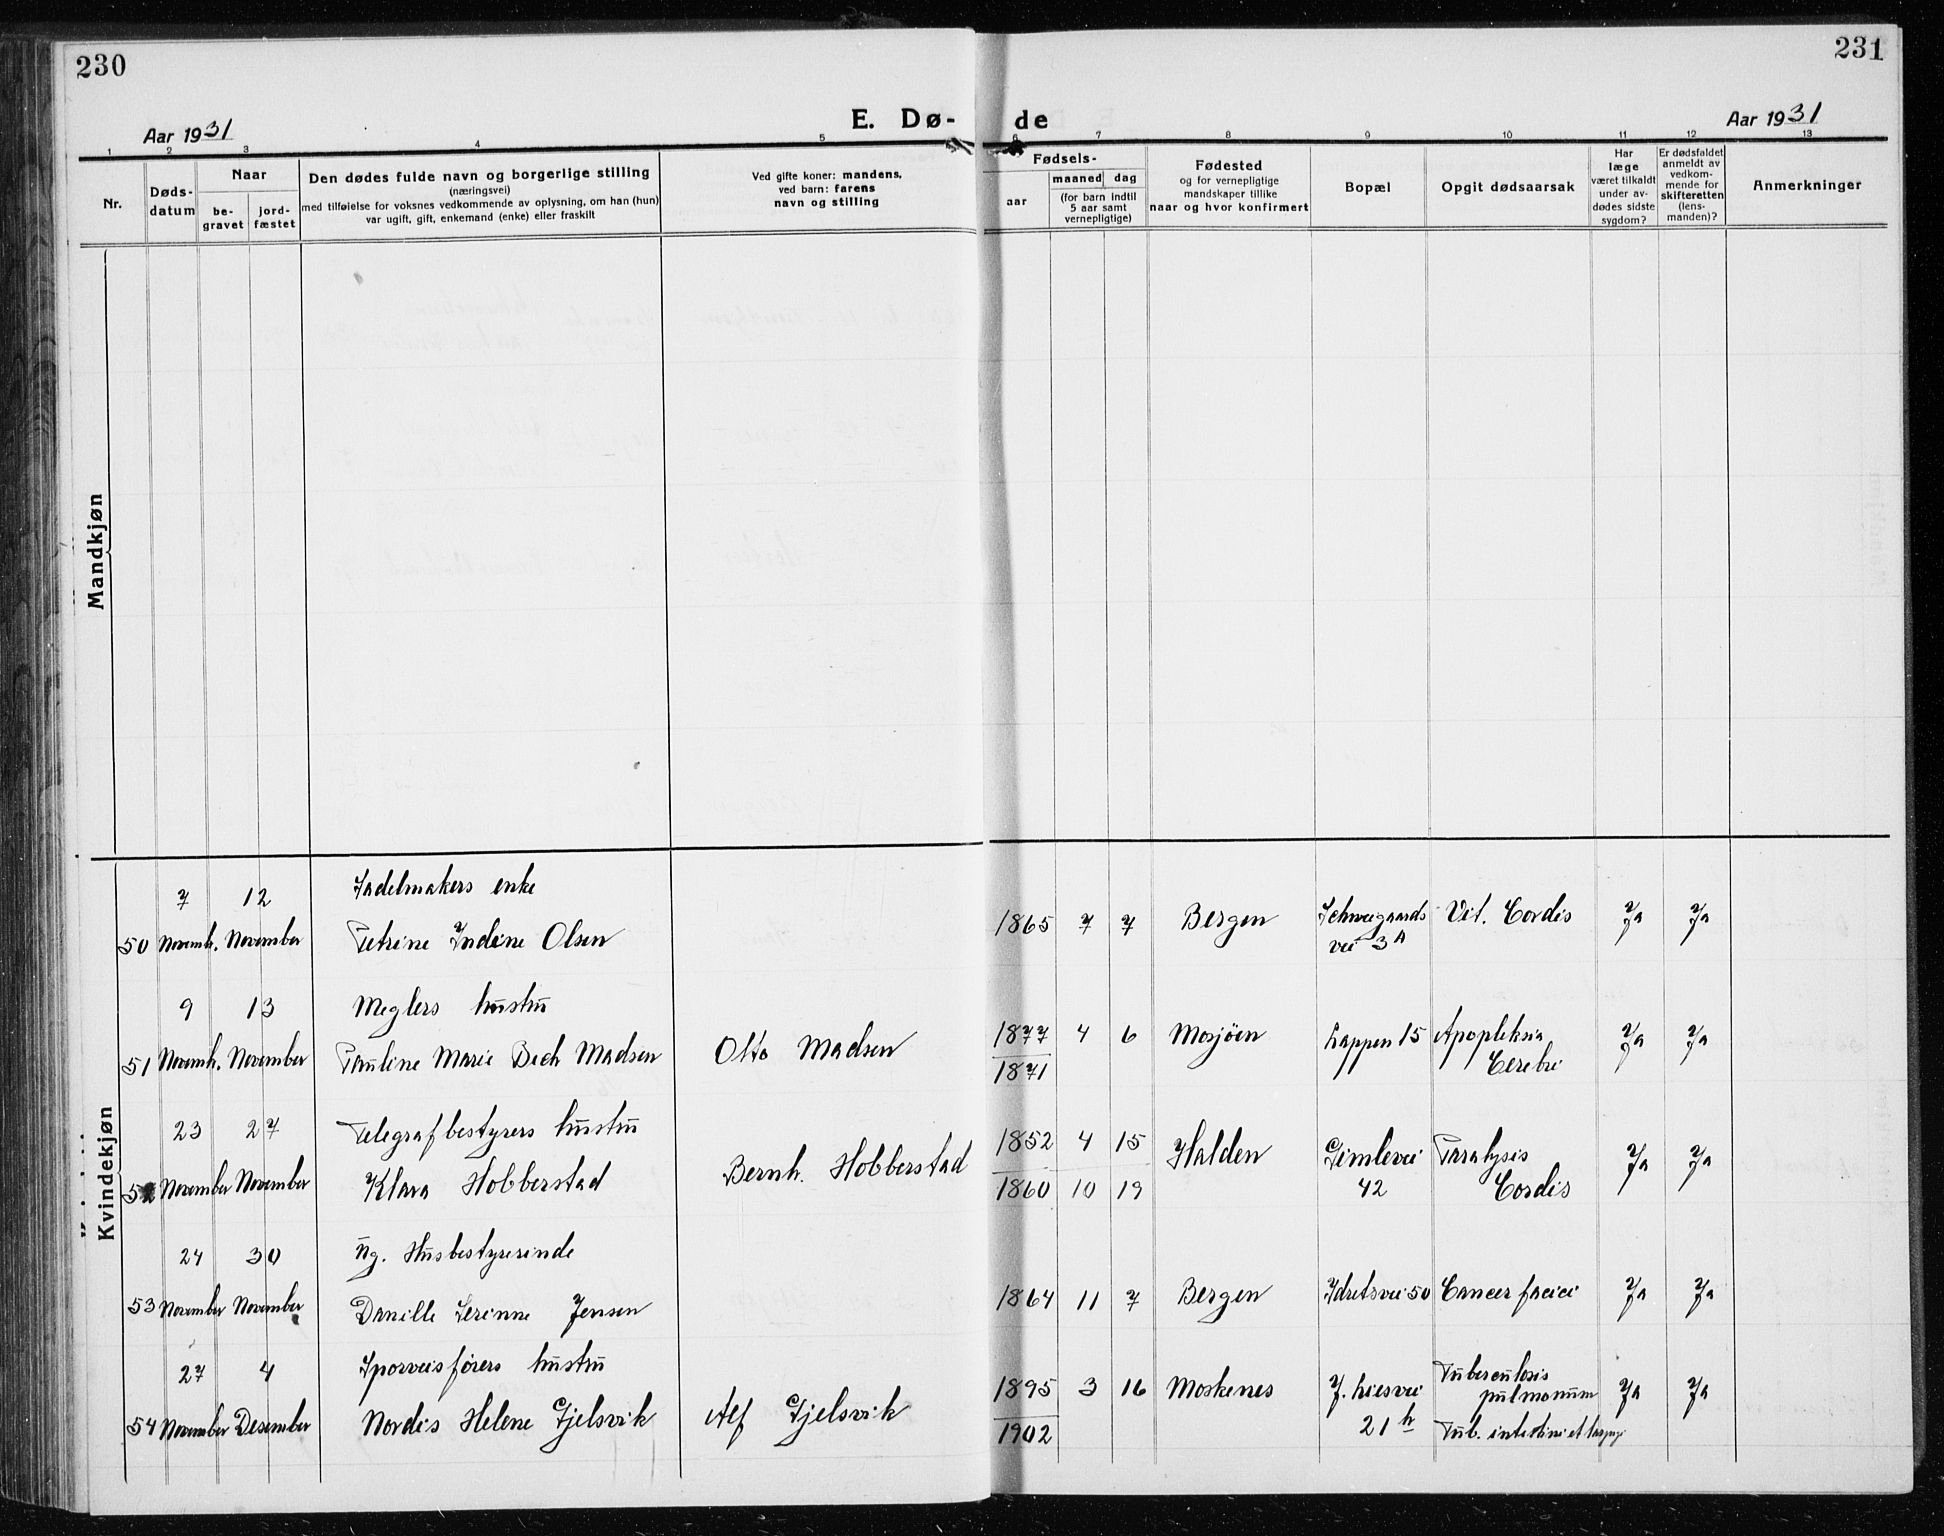 230
231
Aar 1931
E. Dø-
de
Aar 1931
1 2 3 4 5 6 7 8 9 10 11 12 13
Nr.
Døds-
datum
Naar
be-
gravet
jord-
fæstet
Den dødes fulde navn og borgerlige stilling
(næringsvei)
med tilføielse for voksnes vedkommende av oplysning, om han (hun)
var ugift, gift, enkemand (enke) eller fraskilt
Ved gifte koner: mandens,
ved barn: farens
navn og stilling
Fødsels-
aar
maaned dag
(for barn indtil
5 aar samt
vernepligtige)
Fødested
og for vernepligtige
mandskaper tillike
naar og hvor konfirmert
Bopæl
Opgit dødsaarsak
Har
læge
været tilkaldt
under av-
dødes sidste
sygdom?
Er dødsfaldet
anmeldt av
vedkom-
mende for
skifteretten
(lens-
manden)?
Anmerkninger
Mandkjøn
Kvindekjøn
7 12 Sadelmakers enke
50 Novemb. November Petrine Indine Olsen 1865 7 7 Bergen Schweigaards Vit. Cordis Ja Ja
vei 3A
9 13 Meglers hustru
51 Novemb. November Pauline Marie Bech Madsen Otto Madsen 1877 4 6 Mosjøen Lappen 15 Apopleksia Ja Ja
1871 Cerebri
23 27 Telegrafbestyrers hustru 1852 4 15
52 November November Klara Hobberstad Bernh. Hobberstad Halden Gimlevei Paralysis Ja Ja
1860 10 19 42 Cordis
24 30 Ug. Husbestyrerinde
53 November November Danille Serinne Jensen 1864 11 7 Bergen Idretsvei 50 Cancer faciei Ja Ja
27 4 Sporveisførers hustru
54 November Desember Nordis Helene Gjelsvik Alf Gjelsvik 1895 3 16 Moskenes J. Liesvei Tuberculosis Ja Ja
pulmonum
1902 21 h Tub. intestini et